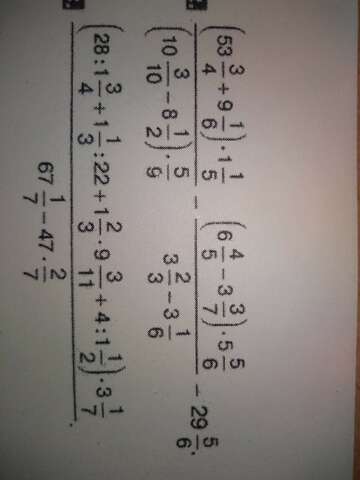 (53 3/4 + 9 1/6) · 1 1/5 / (10 3/10 − 8 1/2) · 5/9 − (6 4/5 − 3 3/7) · 5 5/6 / 3 2/3 − 3 1/6 − 29 5/6.
(28 : 1 3/4 + 1 1/3 : 22 + 1 2/3 · 9 3/11 + 4 : 1 1/2) · 3 1/7 / 67 1/7 − 47 · 2/7.